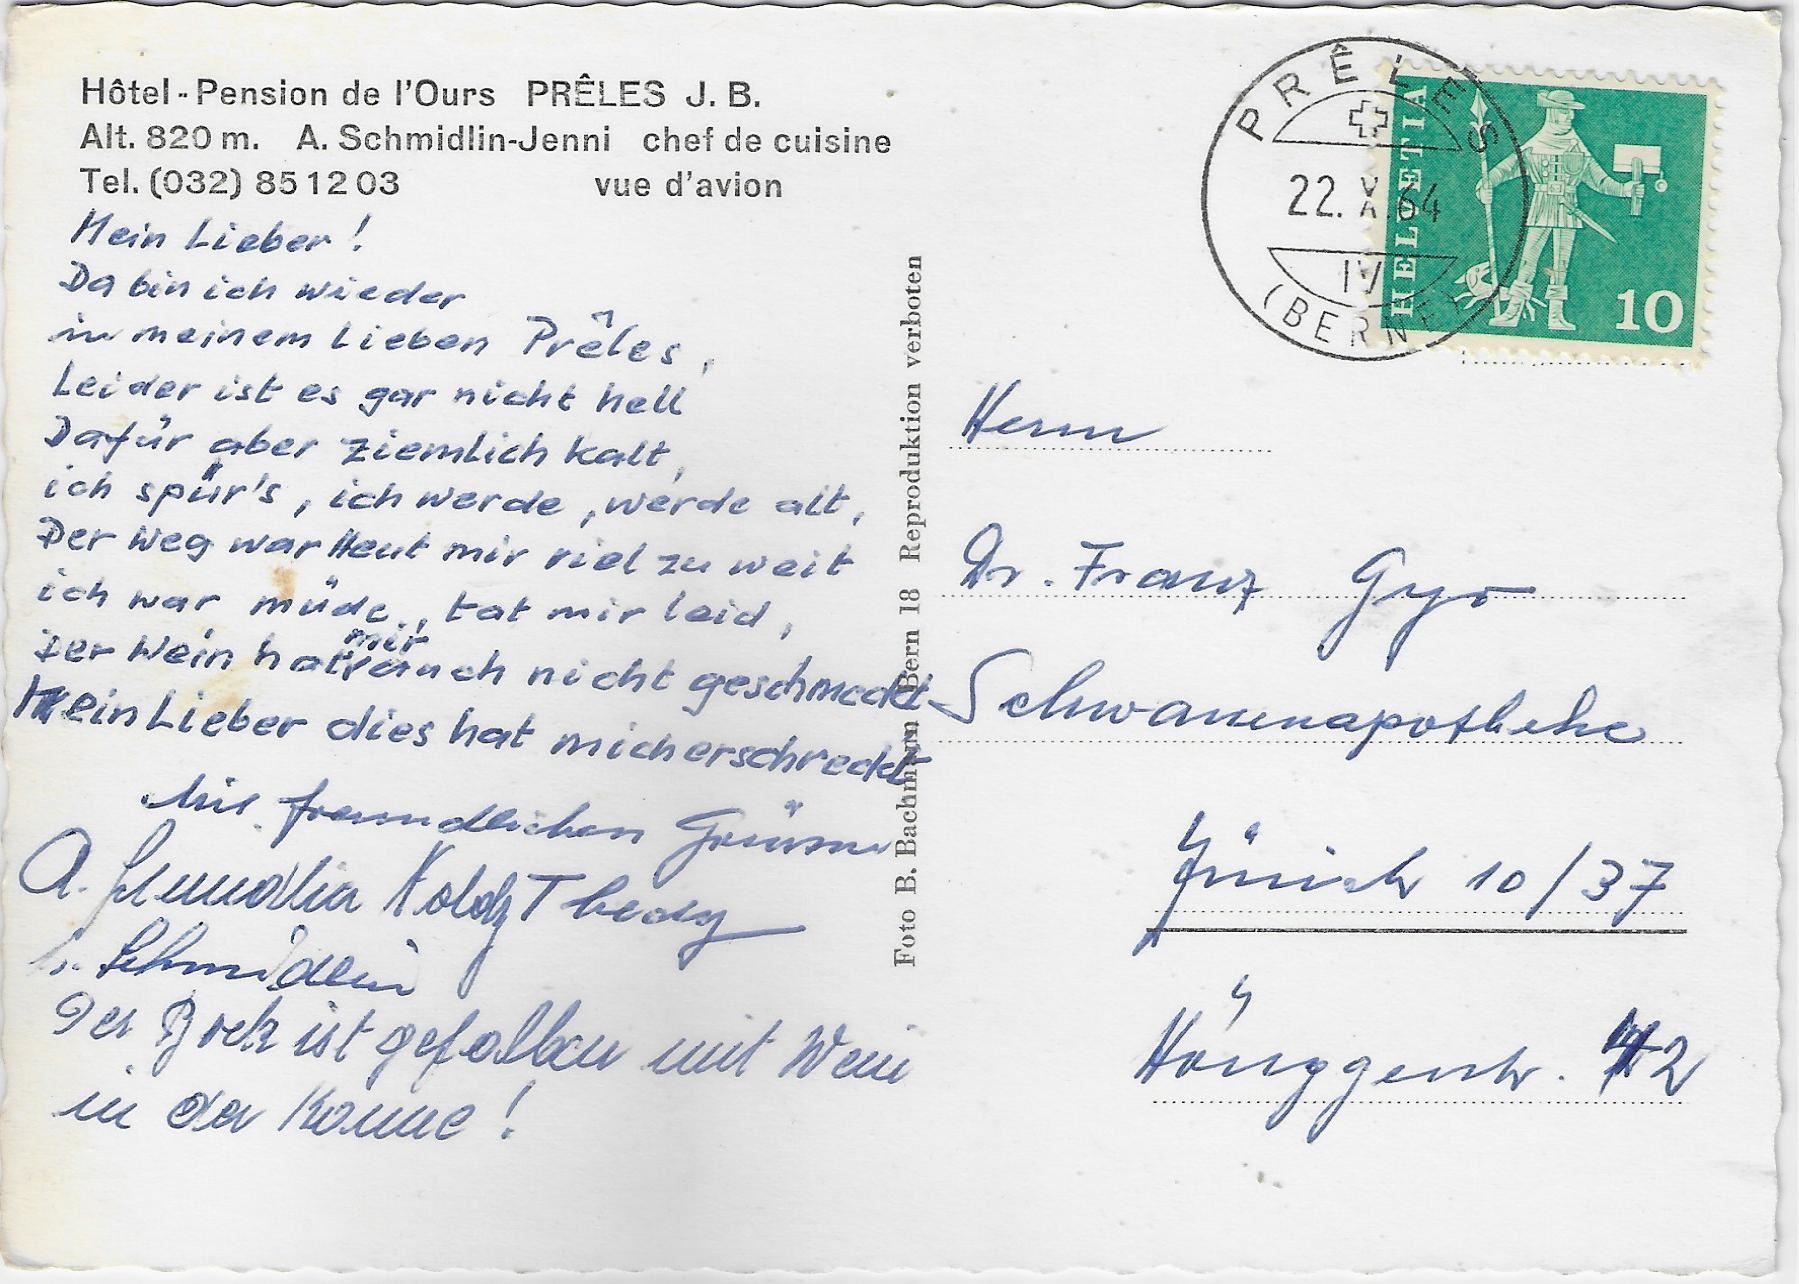 Hôtel - Pension de l'Ours PRÊLES J. B.
Alt. 820 m. A. Schmidlin-Jenni chef de cuisine
Tel. (032) 85 12 03 vue d'avion
Mein Lieber!
Da bin ich wieder
in meinem Lieben Prêles,
Leider ist es gar nicht hell
Dafür aber ziemlich kalt,
ich spür's, ich werde, werde alt,
Der Weg war Heut mir viel zu weit
ich war müde, tat mir leid,
Der Wein hat mir auch nicht geschmeckt
Mein Lieber dies hat mich erschreckt
Mit freundlichen Grüssen
A.
Schmidlin
Der ist gefallen mit Wein
in der Kanne!
Foto B. Bachmann Bern 18 Reproduktion verboten
PRÊLES
22. 64
IV
(BERNE)
HELVETIA
10
Herrn
Dr. Franz Gyr
Schwanenapotheke
Zürich 10/37
Hönggerstr. 42